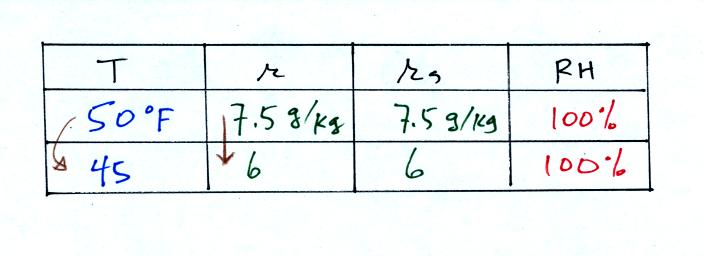 T r rs RH
50°F 7.5 g/kg 7.5 g/kg 100%
45 6 6 100%